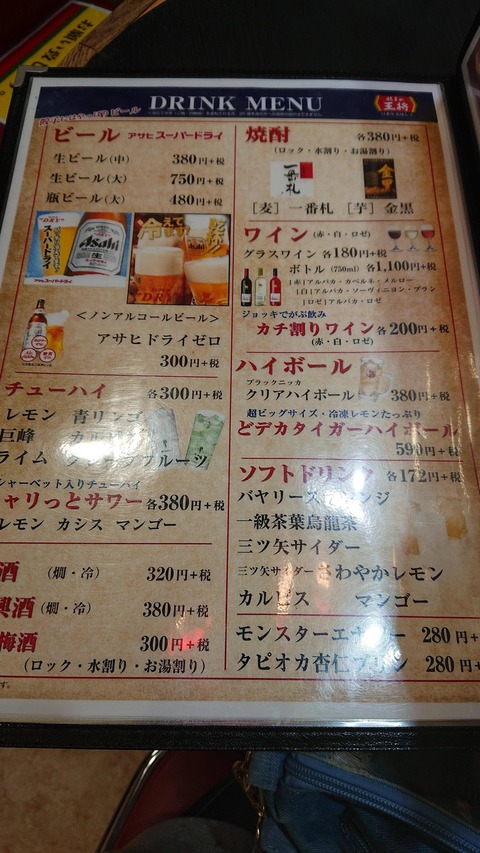 DRINK MENU
王将
ビール アサヒスーパードライ
生ビール(中) 380円+税
生ビール(大) 750円+税
瓶ビール(大) 480円+税
スーパードライ
Asahi
生
冷えてます
<ノンアルコールビール>
アサヒドライゼロ
300円+税
チューハイ 各300円+税
レモン 青リンゴ
巨峰
ライム
シャーベット入りチューハイ
ャリっとサワー 各380円+税
レモン カシス マンゴー
酒 (燗・冷) 320円+税
興酒 (燗・冷) 380円+税
梅酒 300円+税
(ロック・水割り・お湯割り)
焼酎 各380円+税
(ロック・水割り・お湯割り)
一番札
金黒
[麦] 一番札 [芋] 金黒
ワイン (赤・白・ロゼ)
グラスワイン 各180円+税
ボトル (750ml) 各1,100円+税
[赤]アルパカ・カベルネ・メルロー
[白]アルパカ・ソーヴィニヨン・ブラン
[ロゼ]アルパカ・ロゼ
ジョッキでがぶ飲み
カチ割りワイン 各200円+税
(赤・白・ロゼ)
ハイボール
ブラックニッカ
クリアハイボール 380円+税
超ビッグサイズ・冷凍レモンたっぷり
どデカタイガーハイボール
590円+税
ソフトドリンク 各172円+税
バヤリースオレンジ
一級茶葉烏龍茶
三ツ矢サイダー
三ツ矢サイダーさわやかレモン
カルピス マンゴー
モンスターエナジー 280円+
タピオカ杏仁プリン 280円+